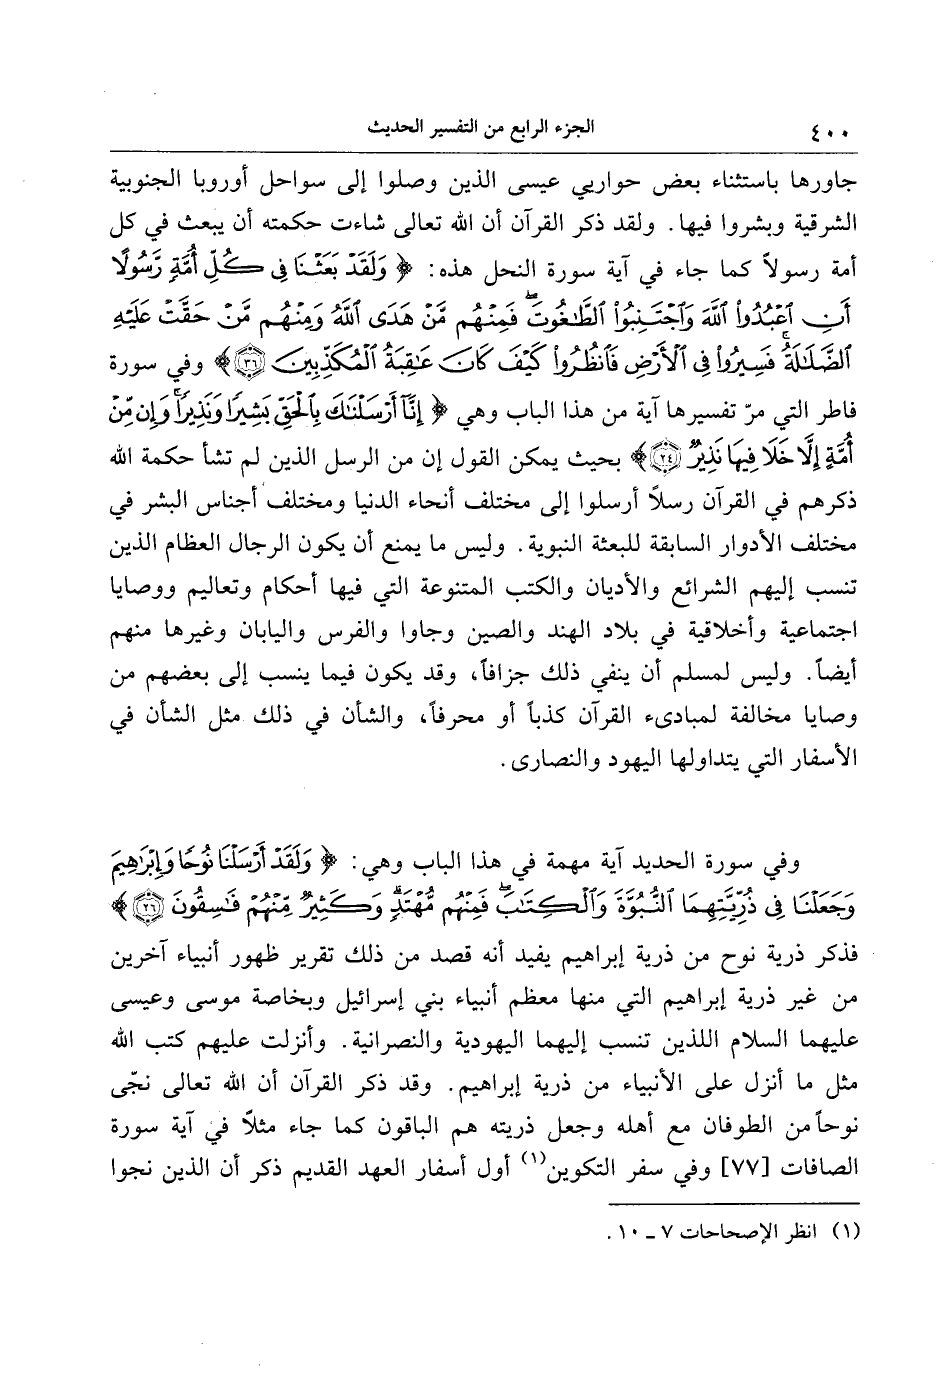 ٤٠٠ الجزء الرابع من التفسير الحديث
جاورها باستثناء بعض حواريي عيسى الذين وصلوا إلى سواحل أوروبا الجنوبية
الشرقية وبشروا فيها. ولقد ذكر القرآن أن الله تعالى شاءت حكمته أن يبعث في كل
أمة رسولاً كما جاء في آية سورة النحل هذه: ﴿ وَلَقَدْ بَعَثْنَا فِي كُلِّ أُمَّةٍ رَّسُولًا
أَنِ اعْبُدُوا اللَّهَ وَاجْتَنِبُوا الطَّاغُوتَ ۖ فَمِنْهُم مَّنْ هَدَى اللَّهُ وَمِنْهُم مَّنْ حَقَّتْ عَلَيْهِ
الضَّلَالَةُ ۚ فَسِيرُوا فِي الْأَرْضِ فَانظُرُوا كَيْفَ كَانَ عَاقِبَةُ الْمُكَذِّبِينَ ٣٦ ﴾ وفي سورة
فاطر التي مرّ تفسيرها آية من هذا الباب وهي ﴿ إِنَّا أَرْسَلْنَاكَ بِالْحَقِّ بَشِيرًا وَنَذِيرًا ۚ وَإِن مِّنْ
أُمَّةٍ إِلَّا خَلَا فِيهَا نَذِيرٌ ٢٤ ﴾ بحيث يمكن القول إن من الرسل الذين لم تشأ حكمة الله
ذكرهم في القرآن رسلاً أرسلوا إلى مختلف أنحاء الدنيا ومختلف أجناس البشر في
مختلف الأدوار السابقة للبعثة النبوية. وليس ما يمنع أن يكون الرجال العظام الذين
تنسب إليهم الشرائع والأديان والكتب المتنوعة التي فيها أحكام وتعاليم ووصايا
اجتماعية وأخلاقية في بلاد الهند والصين وجاوا والفرس واليابان وغيرها منهم
أيضاً. وليس لمسلم أن ينفي ذلك جزافاً، وقد يكون فيما ينسب إلى بعضهم من
وصايا مخالفة لمبادىء القرآن كذباً أو محرفاً، والشأن في ذلك مثل الشأن في
الأسفار التي يتداولها اليهود والنصارى.
وفي سورة الحديد آية مهمة في هذا الباب وهي: ﴿ وَلَقَدْ أَرْسَلْنَا نُوحًا وَإِبْرَاهِيمَ
وَجَعَلْنَا فِي ذُرِّيَّتِهِمَا النُّبُوَّةَ وَالْكِتَابَ ۖ فَمِنْهُم مُّهْتَدٍ ۖ وَكَثِيرٌ مِّنْهُمْ فَاسِقُونَ ٢٦ ﴾
فذكر ذرية نوح من ذرية إبراهيم يفيد أنه قصد من ذلك تقرير ظهور أنبياء آخرين
من غير ذرية إبراهيم التي منها معظم أنبياء بني إسرائيل وبخاصة موسى وعيسى
عليهما السلام اللذين تنسب إليهما اليهودية والنصرانية. وأنزلت عليهم كتب الله
مثل ما أنزل على الأنبياء من ذرية إبراهيم. وقد ذكر القرآن أن الله تعالى نجّى
نوحاً من الطوفان مع أهله وجعل ذريته هم الباقون كما جاء مثلاً في آية سورة
الصافات [٧٧] وفي سفر التكوين(١) أول أسفار العهد القديم ذكر أن الذين نجوا
(١) انظر الإصحاحات ٧ ـ ١٠.